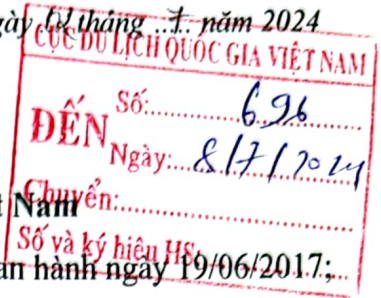 ày 02 tháng ..7.. năm 2024
CỤC DU LỊCH QUỐC GIA VIỆT NAM
ĐẾN
Số:..........696..........
Ngày:...8/7/2024
t Nam
Chuyển:..............................
Số và ký hiệu HS:..................
an hành ngày 19/06/2017;